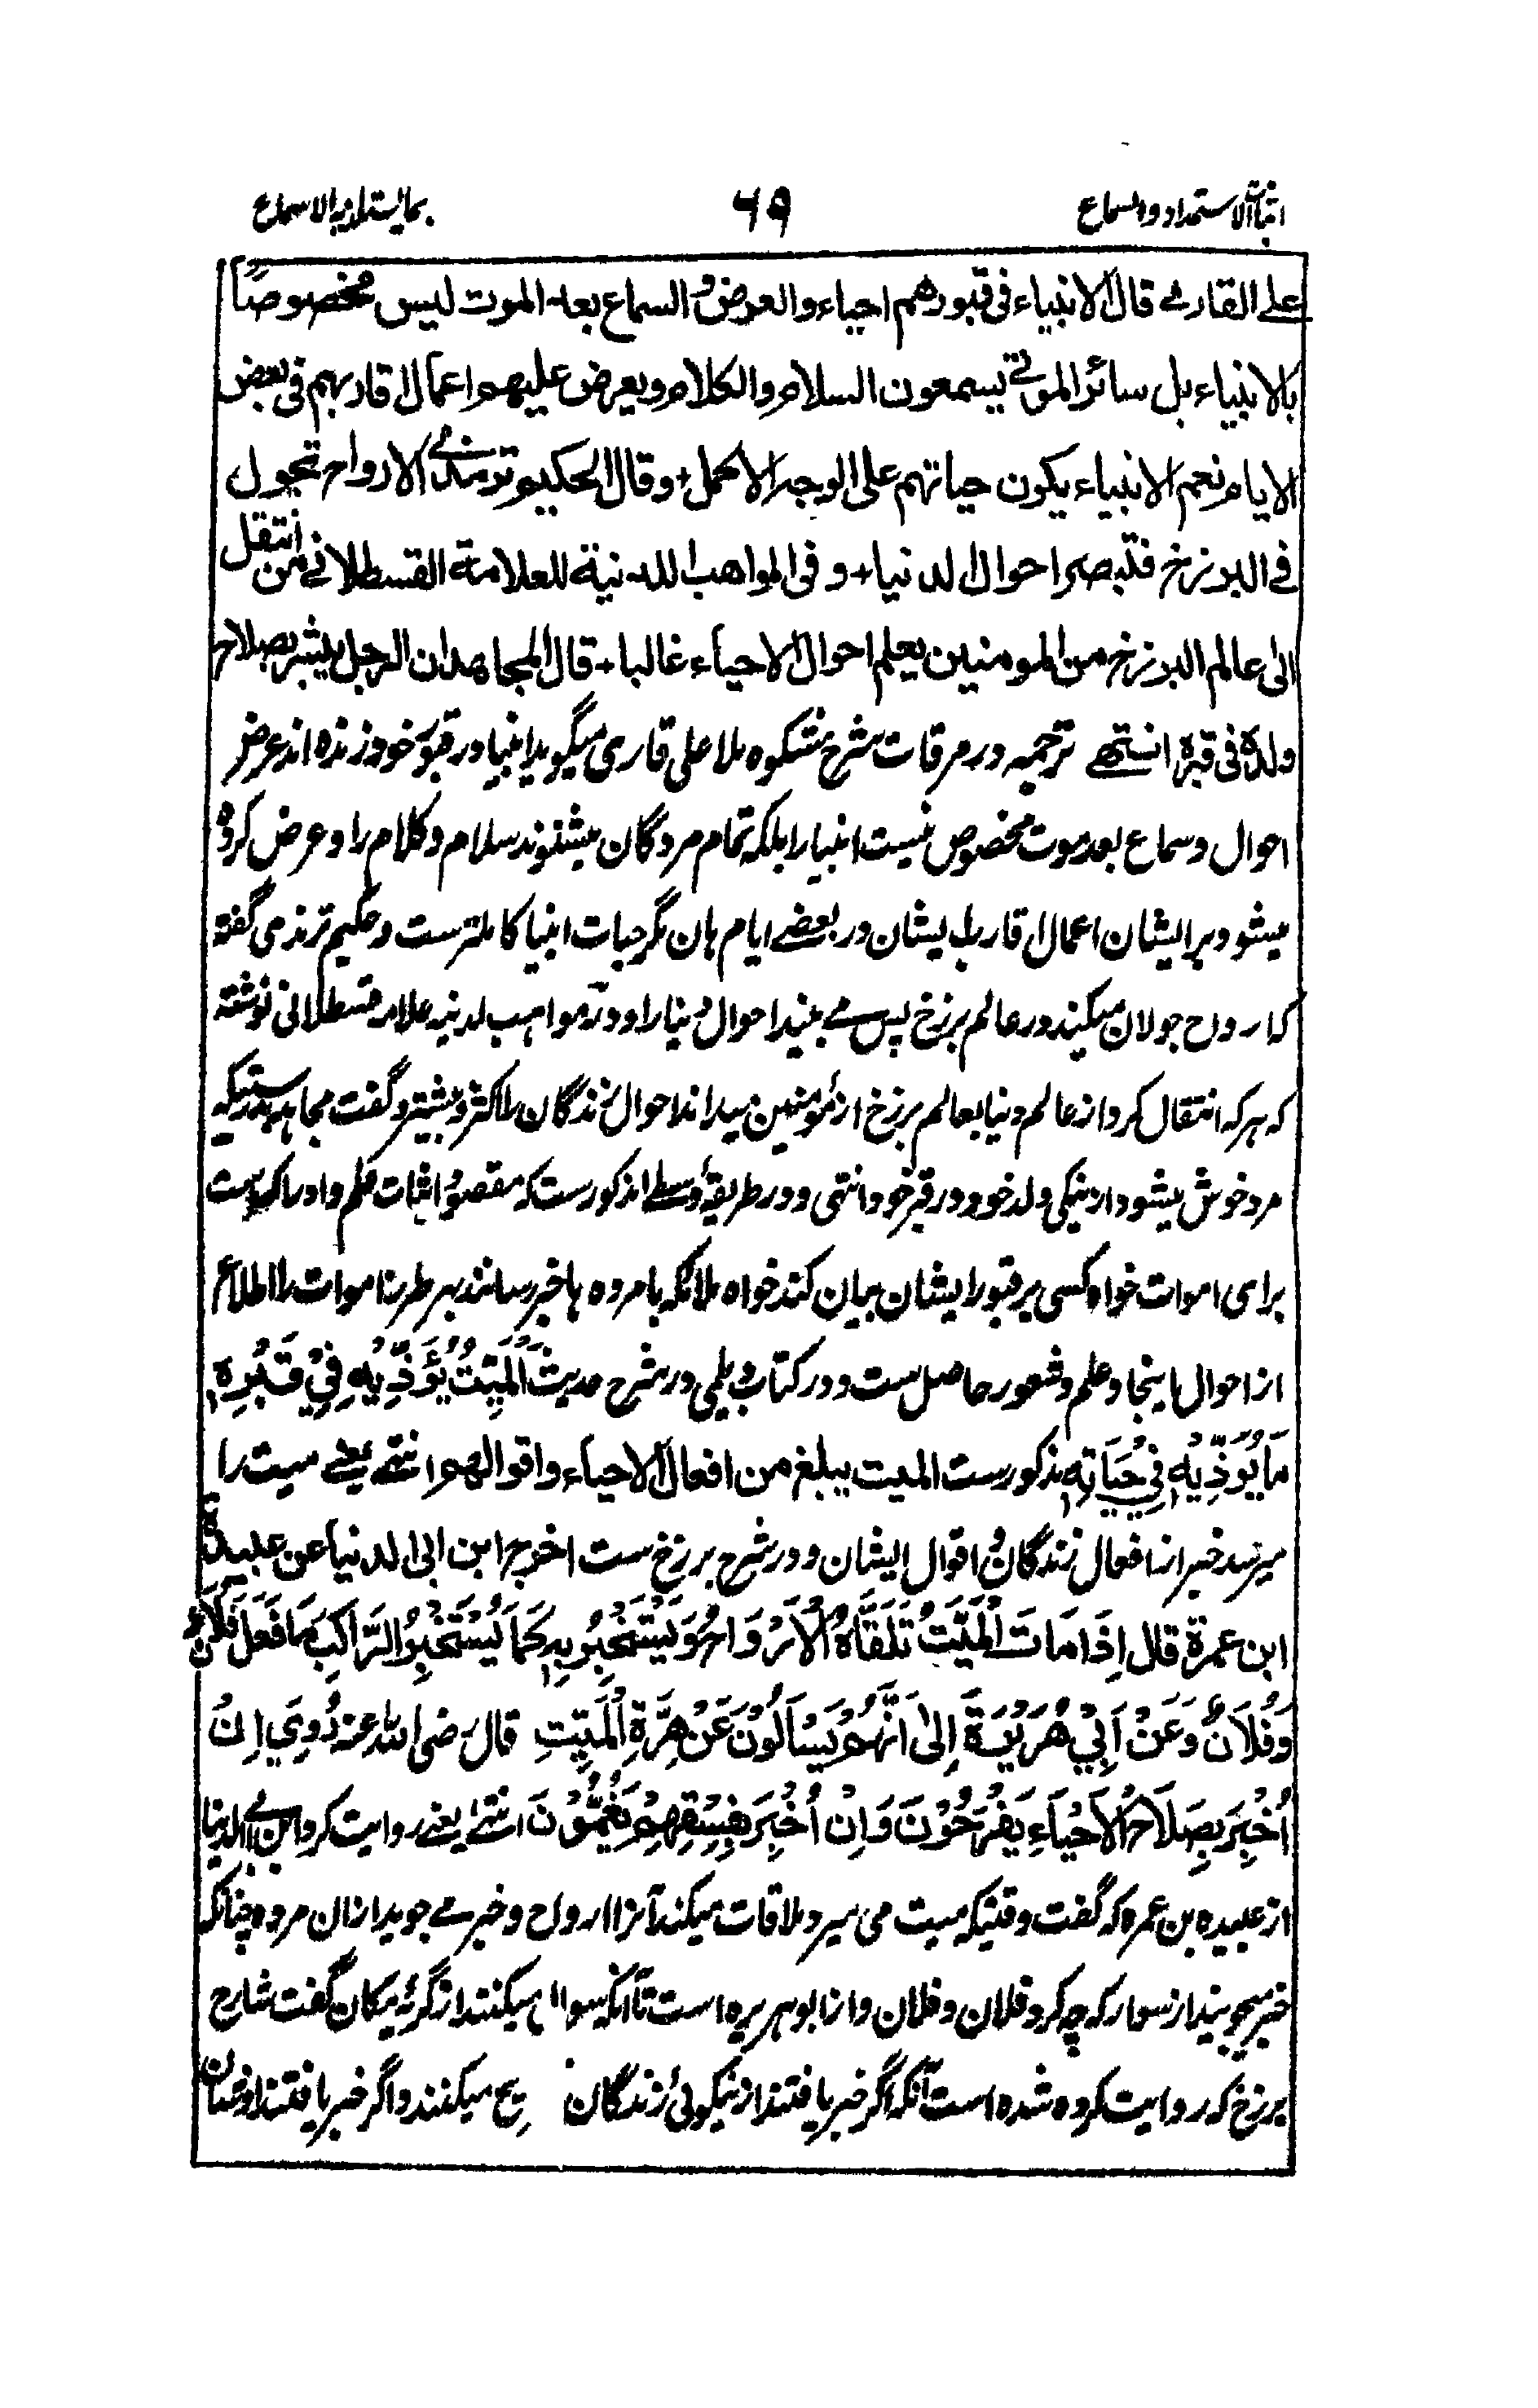 اثبات الاستمداد والسماع
۶۹
بما یستلذ به الاسماع
علی القاری قال الانبیاء فی قبورهم احیاء والعرض والسماع بعد الموت لیس مخصوصًا
بالانبیاء بل سائر الموتی یسمعون السلام والکلام ویعرض علیهم اعمال اقاربهم فی بعض
الایام نعم الانبیاء یکون حیاتهم علی الوجه الاکمل + وقال الحکیم ترمذی الارواح تجول
فی البرزخ فتبصر احوال الدنیا + و فی المواهب اللدنیة للعلامة القسطلانی من انتقل
الی عالم البرزخ من المومنین یعلم احوال الاحیاء غالبا + قال المجاهد ان الرجل یبشر بصلاح
ولده فی قبره انتهی ترجمه در مرقات شرح مشکوه ملا علی قاری میگوید انبیا در قبور خود زنده اند عرض
احوال و سماع بعد موت مخصوص نیست انبیا را بلکه تمام مردگان میشنوند سلام و کلام را و عرض کرده
میشود بر ایشان اعمال اقارب ایشان در بعضے ایام هان مگر حیات انبیا کاملترست و حکیم ترمذی گفته
که ارواح جولان میکند در عالم برزخ پس می بیند احوال دنیا را و در مواهب لدنیه علامه قسطلانی نوشته
که هر که انتقال کرد از عالم دنیا بعالم برزخ از مؤمنین میداند احوال زندگان را اکثر و بیشتر و گفت مجاهد بدرستیکه
مرد خوش میشود از نیکی ولد خود در قبر خود انتهی و در طریقه وسطے مذکورست که مقصود اثبات علم و ادراک است
برای اموات خواه کسی بر قبور ایشان بیان کند خواه ملائکه با مرده ها خبر رسانند بهر طرز اموات را اطلاع
از احوال اینجا و علم و شعور حاصل ست و در کتاب دیلمی در شرح حدیث اَلْمَیِّتُ یُؤَذِّیْهِ فِیْ قَبْرِهٖ
مَا یُوَذِّیْهِ فِیْ حَیَاتِهٖ مذکورست المیت یبلغ من افعال الاحیاء واقوالهم انتهی یعنے میت را
میرسد خبر از افعال زندگان و اقوال ایشان و در شرح برزخ ست اخرج ابن ابی الدنیا عن عبیدة
ابن عمرة قال اِذَا مَاتَ الْمَیِّتُ تَلَقَّاهُ الْاَرْوَاحُ وَیَسْتَخْبِرُ بِهٖ کَمَا یُسْتَخْبِرُ الرَّاکِبَ مَا فَعَلَ فُلَانٌ
وَفُلَانٌ وَعَنْ اَبِیْ هُرَیْرَةَ اِلٰی اَنَّهُمْ یَسْاَلُوْنَ عَنْ هِرَّةِ الْمَیِّتِ قال رضی الله عنه رُوِیَ اِنْ
اُخْبِرَ بِصَلَاحِ الْاَحْیَاءِ یَفْرَحُوْنَ وَاِنْ اُخْبِرَ بِفِسْقِهِمْ یَغُمُّوْنَ انتهٰی یعنے روایت کرد ابن ابی الدنیا
از عبیده بن عمره که گفت وقتیکه میت می میرد ملاقات میکند آنرا ارواح و خبر مے جویند ازان مرده چنانکه
خبر میجویند از سوار که چه کرد فلان و فلان و از ابوهریره است تا آنکه سوال میکنند از گربه یکان گفت شارح
برزخ که روایت کرده شده است آنکه اگر خبر یافتند از نیکوئی زندگان میکنند و اگر خبر یافتند از